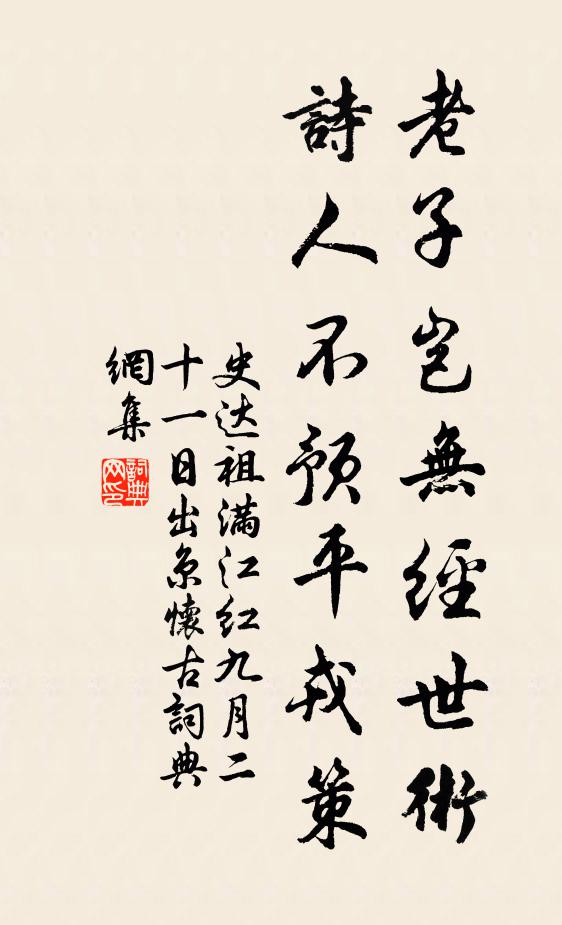 老子豈無經世術
詩人不預平戎策
史达祖满江红九月二
十一日出京懷古詞典
網集
詞典网印